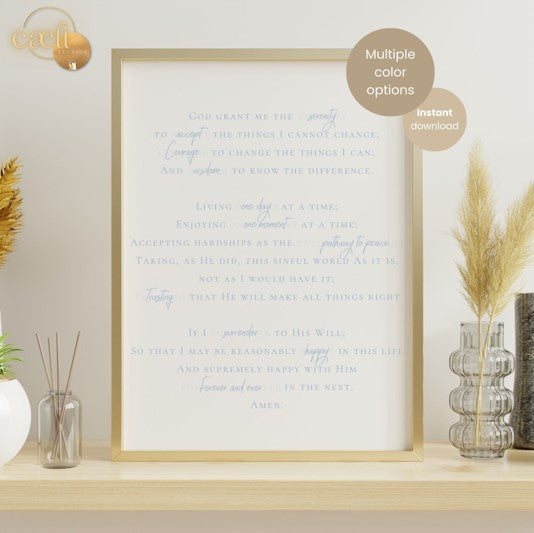 cæli
STUDIOS
Multiple
color
options
Instant
download
God grant me the serenity
to accept the things I cannot change;
Courage to change the things I can;
And wisdom to know the difference.
Living one day at a time;
Enjoying one moment at a time;
Accepting hardships as the pathway to peace
Taking, as He did, this sinful world As it is,
not as I would have it;
Trusting that He will make all things right
If I surrender to His Will;
So that I may be reasonably happy in this life
And supremely happy with Him
Forever and ever in the next.
Amen.